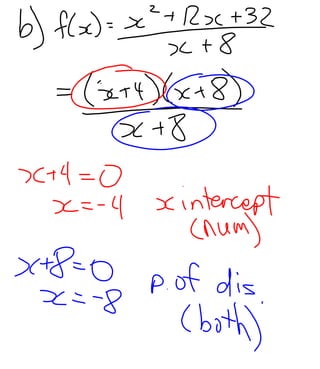 b) f(x) = x² + 12x + 32
x + 8
= (x+4)(x+8)
x + 8
x+4=0
x=-4 x intercept
(num)
x+8=0
x=-8 p.of dis.
(both)